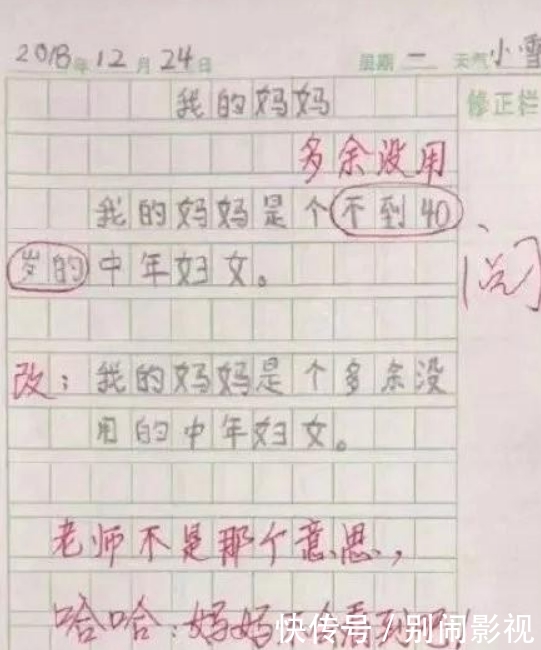 2018年12月24日 星期一 天气小雪
我的妈妈
修正栏
多余没用
我的妈妈是个不到40
岁的中年妇女。
阅
改：我的妈妈是个多余没
用的中年妇女。
老师不是那个意思，
哈哈：妈妈
快传号/别闹影视